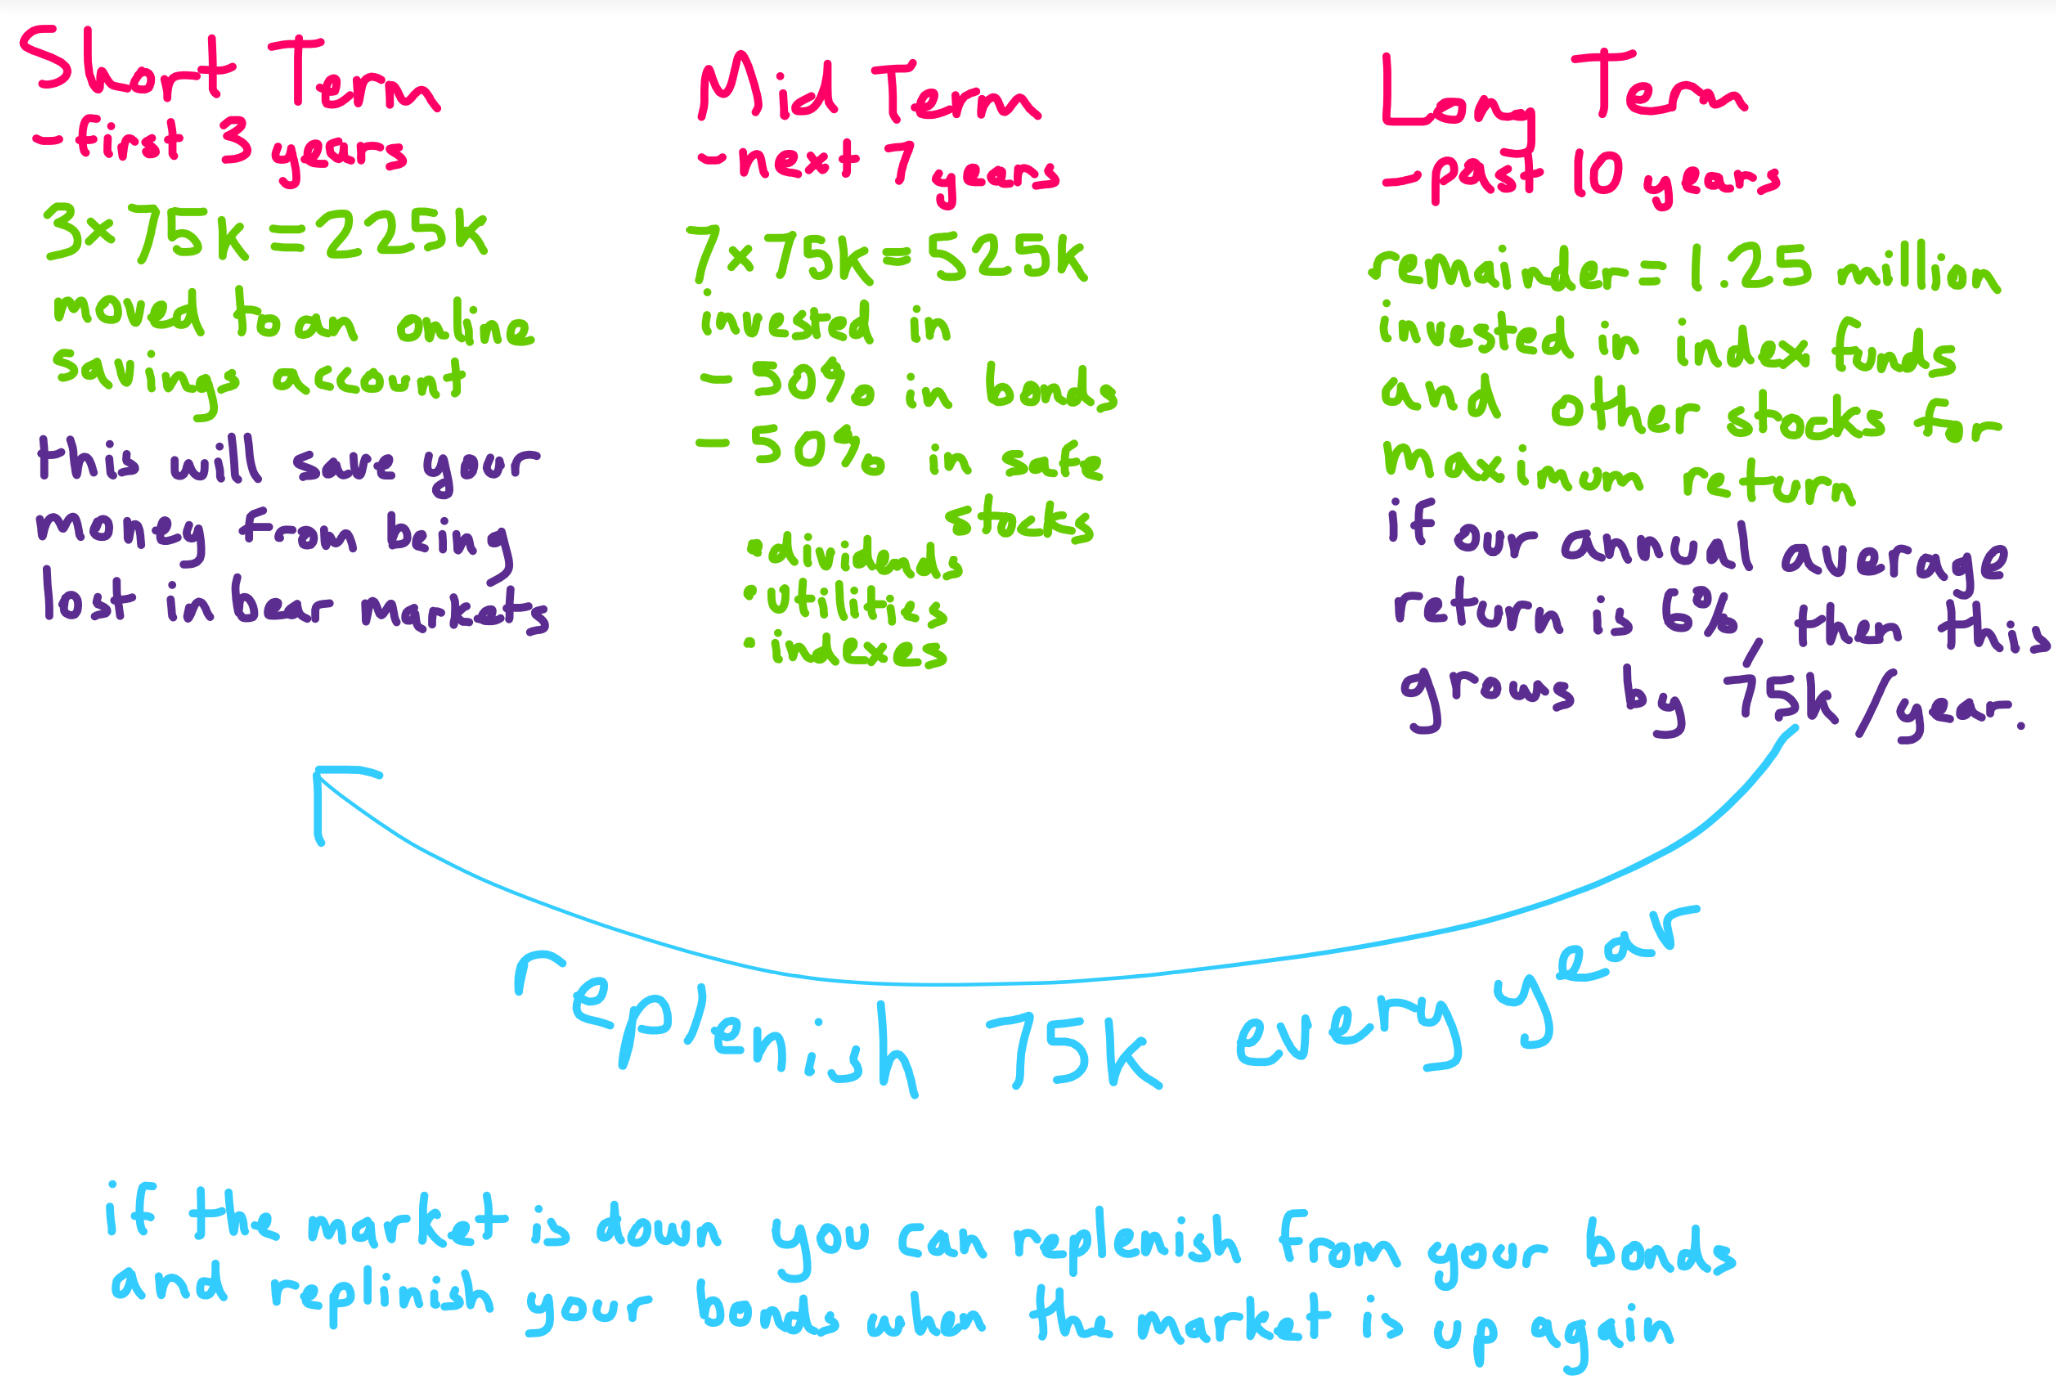 Short Term
-first 3 years
3×75k=225k
moved to an online
savings account
this will save your
money from being
lost in bear markets
Mid Term
-next 7 years
7×75k=525k
invested in
- 50% in bonds
- 50% in safe
stocks
•dividends
•utilities
•indexes
Long Term
-past 10 years
remainder=1.25 million
invested in index funds
and other stocks for
maximum return
if our annual average
return is 6%, then this
grows by 75k/year.
replenish 75k every year
if the market is down you can replenish from your bonds
and replinish your bonds when the market is up again